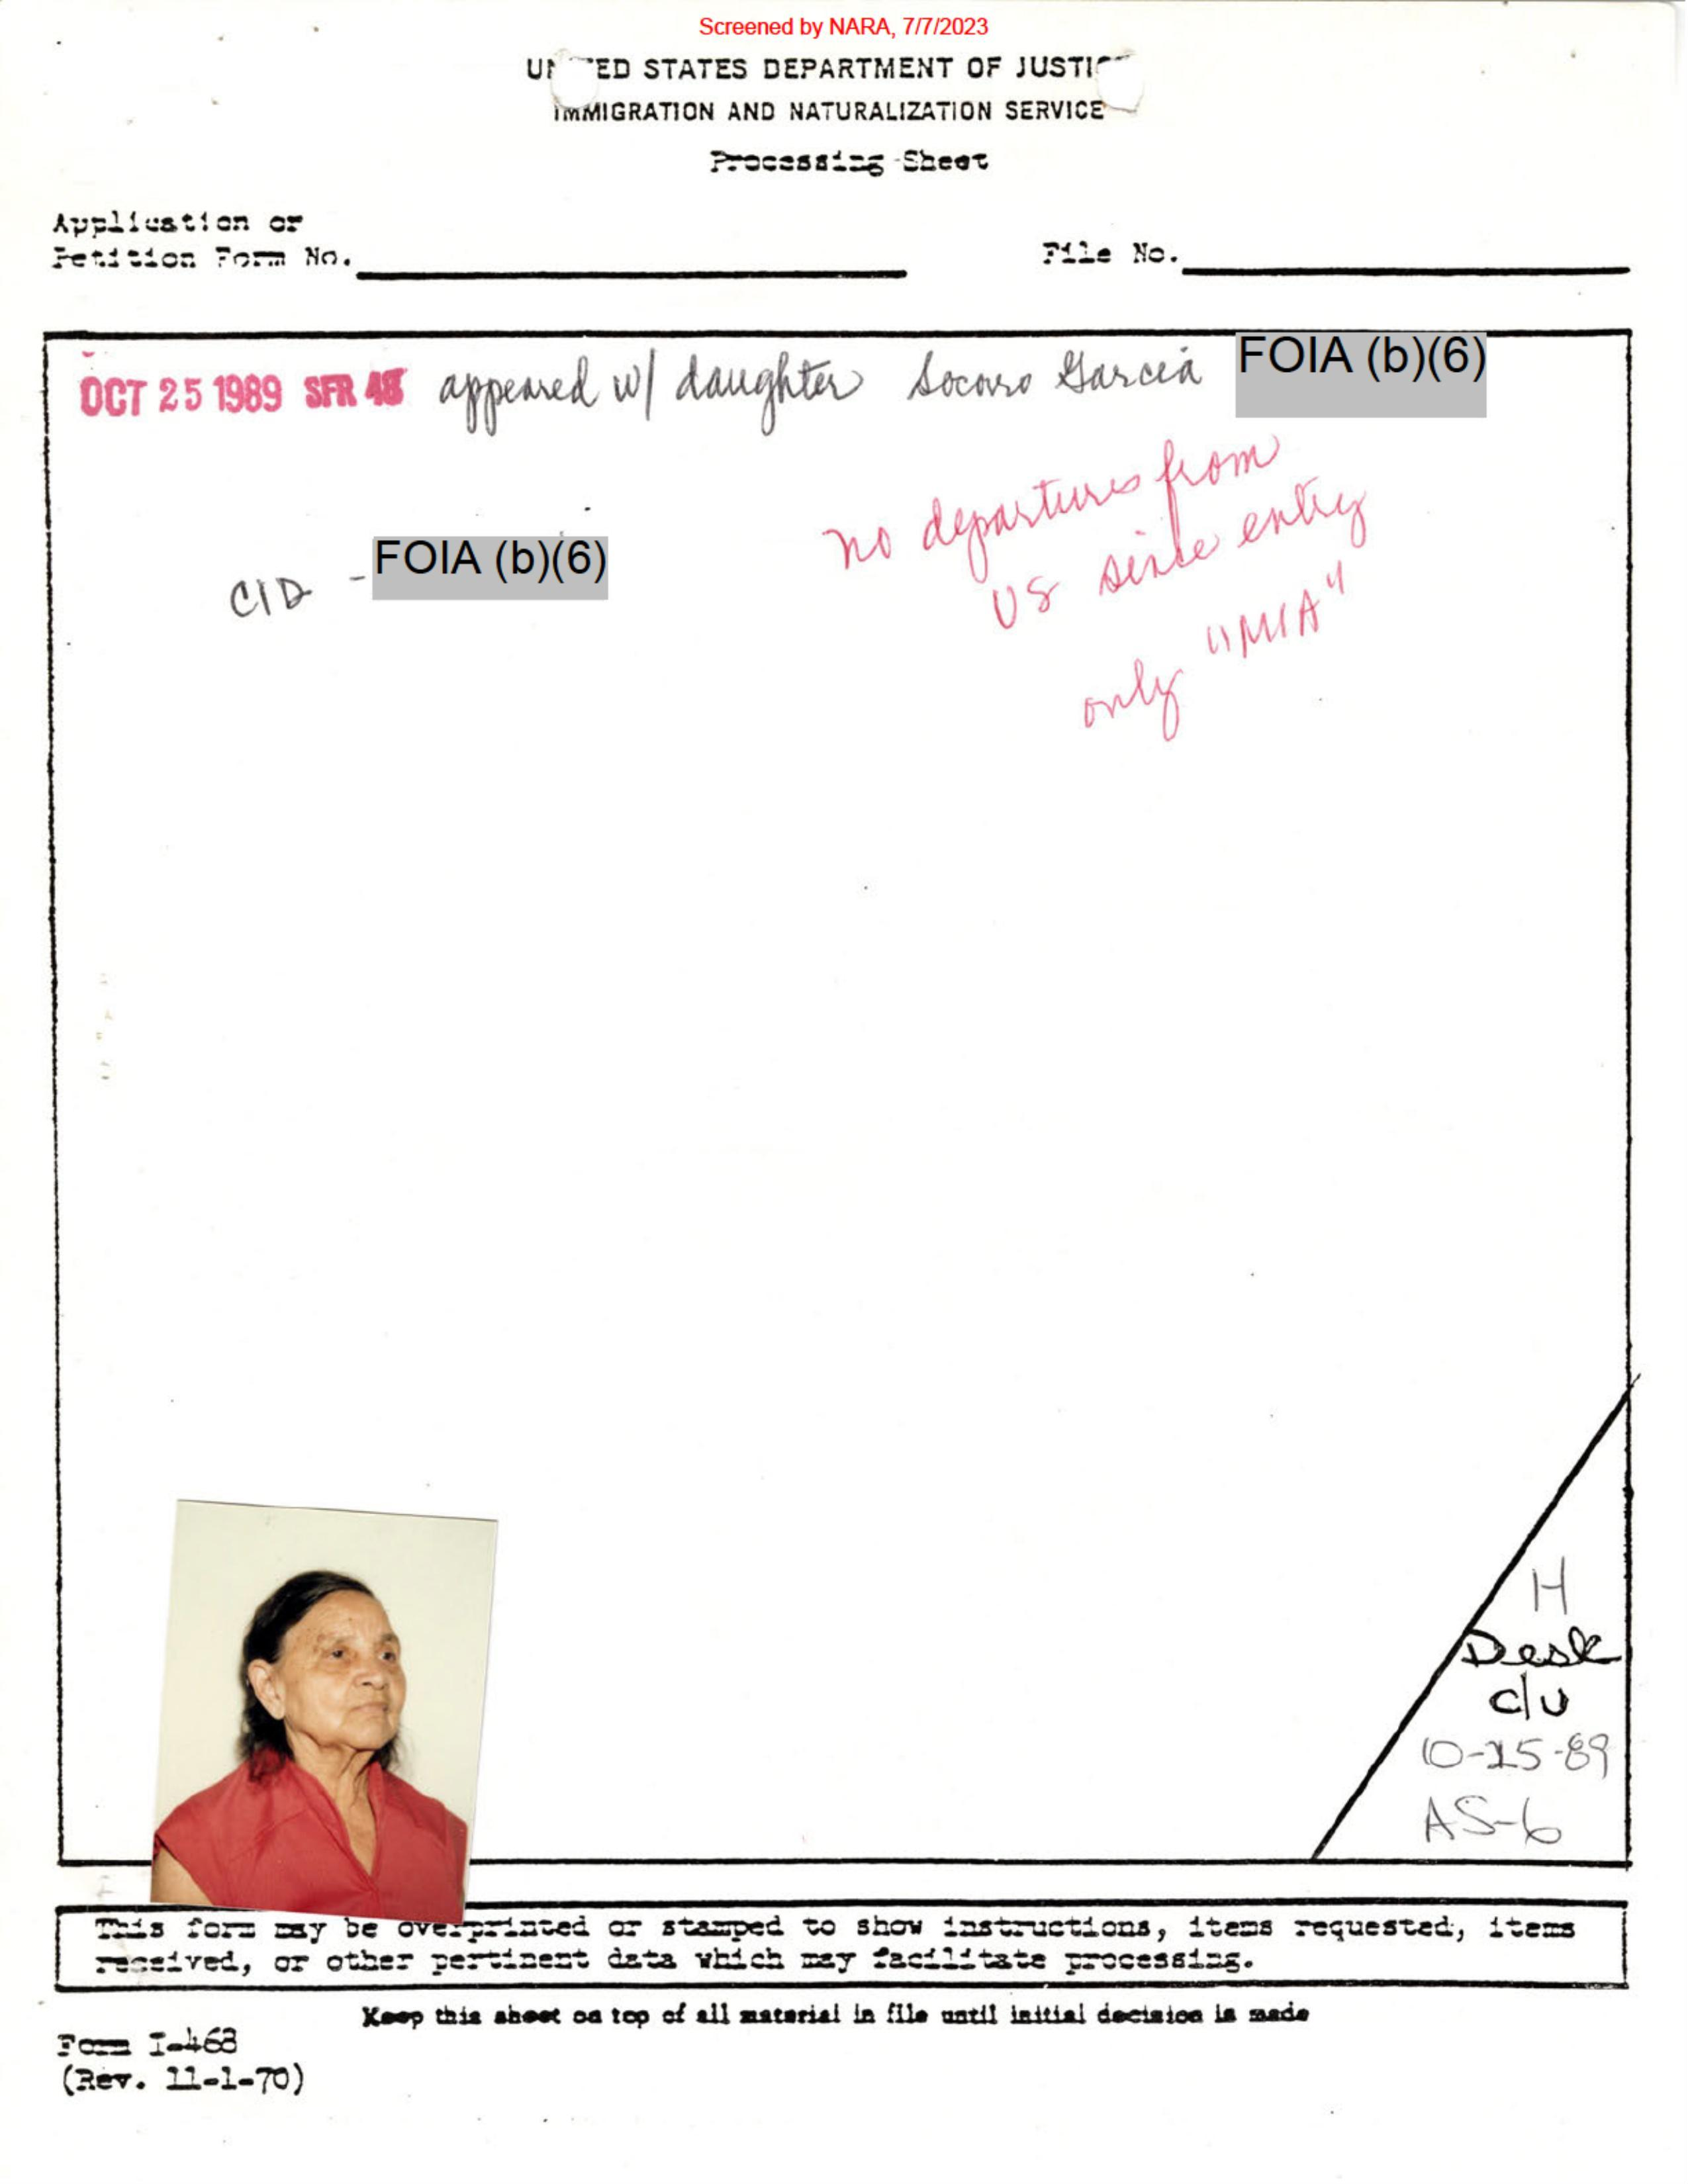 Screened by NARA, 7/7/2023
UNITED STATES DEPARTMENT OF JUSTIC
IMMIGRATION AND NATURALIZATION SERVICE
Processing Sheet
Application or
Petition Form No.
File No.
OCT 25 1989 SFR 48 appeared w/ daughter Socorro Garcia FOIA (b)(6)
no departures from
US since entry
only "MIA"
CID - FOIA (b)(6)
H
Desk
c/u
10-25-89
AS-6
This form may be overprinted or stamped to show instructions, items requested, items
received, or other pertinent data which may facilitate processing.
Keep this sheet on top of all material in file until initial decision is made
Form I-468
(Rev. 11-1-70)